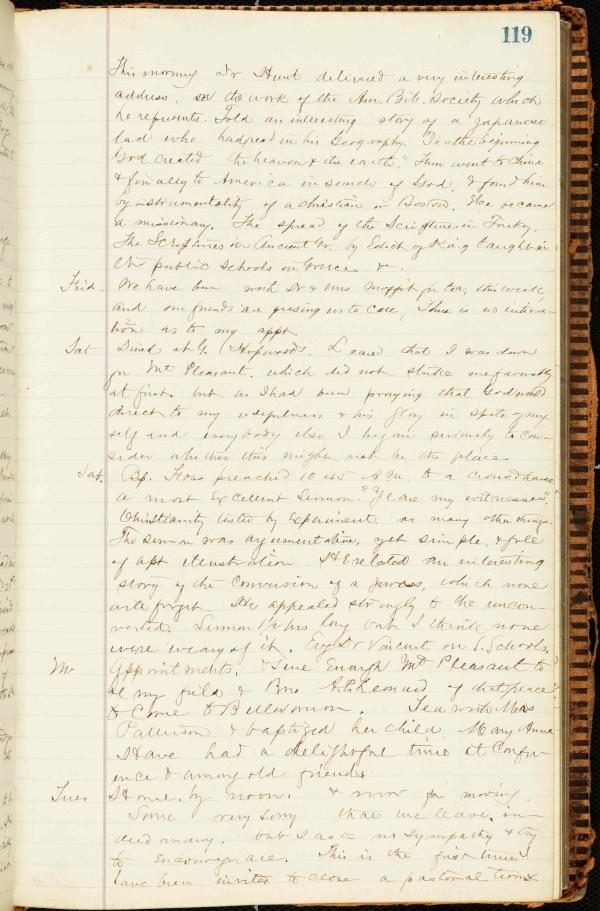 119
This morning Dr Hunt delivered a very interesting
address, on the work of the Am. Bib. Society which
he represents. Told an interesting story of a Japanese
lad who had read in his Geography. "In the beginning
God created the heaven & the earth." Then went to China
& finally to America in search of God. & found him
by instrumentality of a christian in Boston. He became
a missionary. The spread of the Scriptures in Turky.
The Scriptures in Ancient Gr. by Edict of King taught in
public schools in Greece &c.
Frid. We have been with Dr & Mrs Moffit for tea, this week,
and our friends are pressing us to call, There is no intima-
tion as to my appt
Sat Dined at G. Hopwoods. Learned that I was down
for Mt Pleasant, which did not strike me favorably
at first. but as I had been praying that God would
direct to my usefulness & his glory in spite of my
self and everybody else I began seriously to con-
sider whether this might not be the place
Sat. Bp. Foss preached 10 45 A.M. to a crowd house
a most Excellent Sermon. "Ye are my witnesses".
Christianity tested by Experiment as many other things.
The sermon was argumentative, yet simple, & full
of apt illustration. He related an interesting
story of the Conversion of a Jewess, which none
will forget. He appealed strongly to the uncon-
verted. Sermon hrs long but I think none
were weary of it. Eve Dr Vincent on S. Schools.
M. Appointments. & Sure Enough Mt Pleasant to
be my field & Bro A.P. Leonard of that place
to Come to Bellevernon. Tea with Mrs
Patterson & baptized her child, Mary Anna
I Have had a delightful time at Confer-
ence & among old friends
Tues Home. by noon. & now for moving.
Some very sorry that we leave, in-
deed many. but I ask no sympathy & try
to Encourage all. This is the first time I
have been invited to close a pastoral